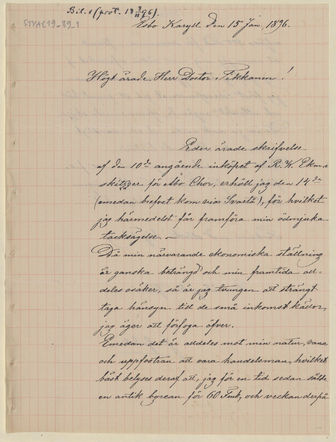 Bil. 1 (prot. 18 3/II 96).
Esbo Karyll den 15 Jan. 1896.
Högt ärade Herr Doctor Tikkanen!
Eder ärade skrifvelse
af den 10de angående inköpet af R. W. Ekmans
skitzer för Åbo Chor, erhöll jag den 14de
(emedan brefvet kom via Svartå), för hvilket
jag härmedelst får framföra min ödmjuka
tacksägelse. —
Då min närvarande ekonomiska ställning
är ganska betängd och min framtida all-
deles osäker, så är jag tvungen att strängt
taga hänsyn till de små inkomst källor,
jag äger att förfoga öfver.
Emedan det är alldeles mot min natur, vana
och uppfostran att vara handelsman, hvilket
bäst belyses deraf att, jag för en tid sedan sålde
en antik byrean för 60 Fmk, och veckan derpå